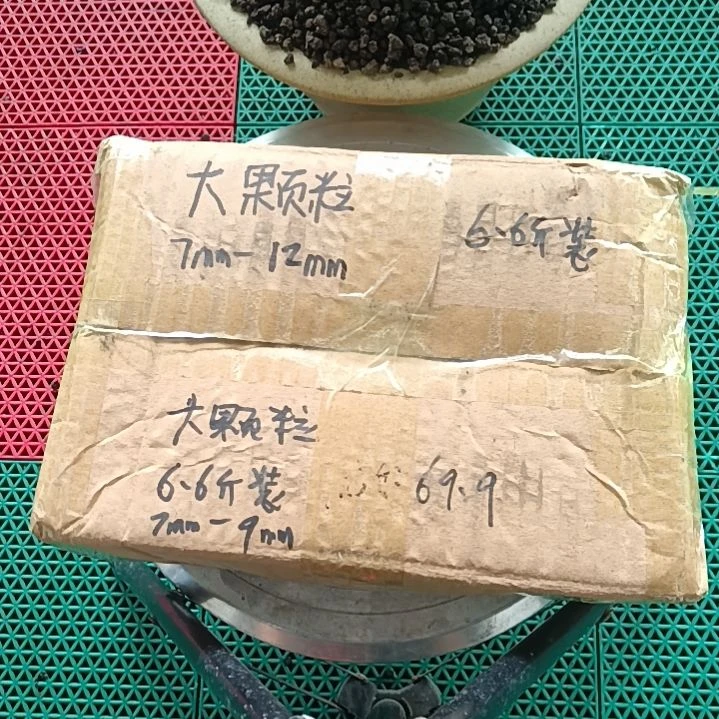 大颗粒
7mm-12mm
6.6斤装
大颗粒
6.6斤装
7mm-9mm
69.9